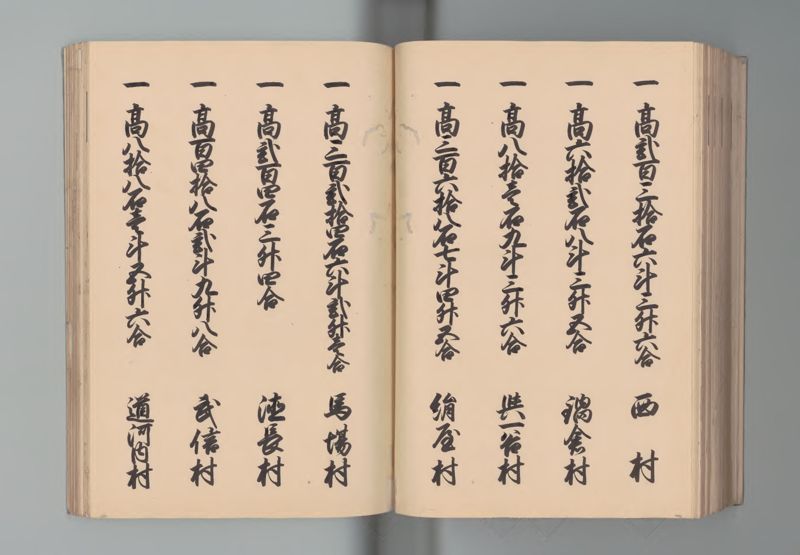 一 高弐百三拾石六斗三升六合 西村
一 高六拾弐石八斗三升五合 鍋倉村
一 高八拾壱石九斗三升六合 與一谷村
一 高三百六拾八石七斗四升五合 絹屋村
一 高三百弐拾四石六斗弐升壱合 馬場村
一 高弐百四石三升四合 徳長村
一 高百四拾八石弐斗九升八合 武信村
一 高八拾八石壱斗五升六合 道河内村